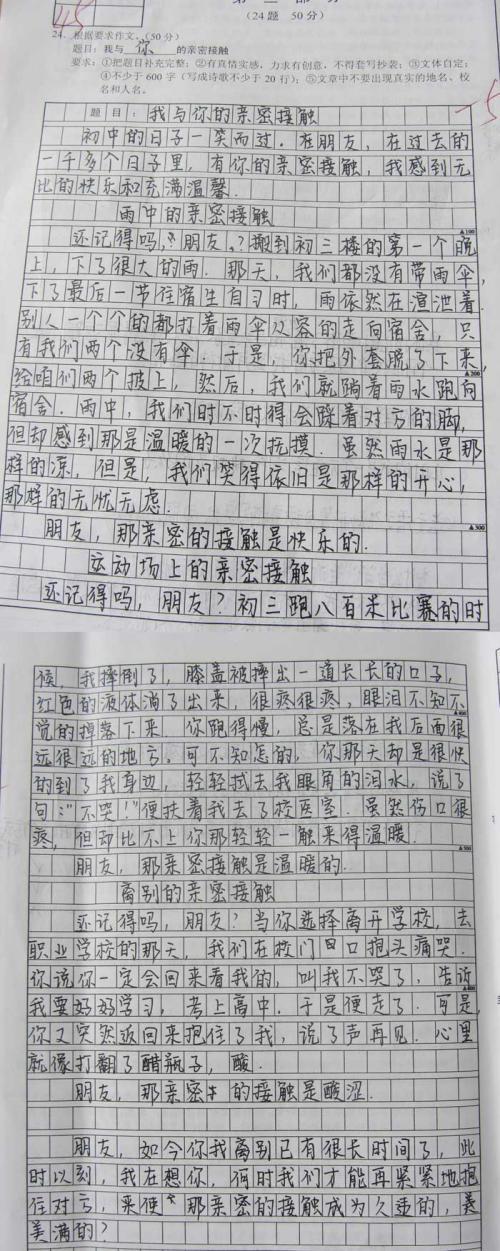 第二部分
(24题 50分)
45
24. 根据要求作文。(50分)
题目：我与 你 的亲密接触
要求：①把题目补充完整；②有真情实感，力求有创意，不得套写抄袭；③文体自定；
④不少于600字（写成诗歌不少于20行）；⑤文章中不要出现真实的地名、校
名和人名。
-5
题目：我与你的亲密接触
初中的日子一笑而过．在朋友，在过去的
一千多个日子里，有你的亲密接触，我感到无
比的快乐和充满温馨．
▲100
雨中的亲密接触
还记得吗，“朋友，？搬到初三楼的第一个晚
上，下了很大的雨．那天，我们都没有带雨伞，
下了最后一节住宿生自习时，雨依然在渲泄着．
别人一个个的都打着雨伞从容的走向宿舍，只
有我们两个没有伞．于是，你把外套脱了下来，
▲200
给咱们两个披上，然后，我们就踏着雨水跑向
宿舍．雨中，我们时不时得会踩着对方的脚，
但却感到那是温暖的一次抚摸．虽然雨水是那
样的凉，但是，我们笑得依旧是那样的开心，
那样的无忧无虑．
▲300
朋友，那亲密的接触是快乐的．
运动场上的亲密接触
还记得吗，朋友？初三跑八百米比赛的时
候，我摔倒了，膝盖被摔出一道长长的口子，
红色的液体淌了出来，很疼很疼，眼泪不知不
▲400
觉的掉落下来．你跑得慢，总是落在我后面很
远很远的地方。可不知怎的，你那天却是很快
的到了我身边，轻轻拭去我眼角的泪水，说了
句：“不哭！”便扶着我去了校医室．虽然伤口很
疼，但却比不上你那轻轻一触来得温暖．
▲500
朋友，那亲密接触是温暖的．
离别的亲密接触
还记得吗，朋友？当你选择离开学校，去
职业学校的那天，我们在校门口抱头痛哭．
你说你一定会回来看我的，叫我不哭了，告诉
▲600
我要好好学习，考上高中．于是便走了．可是，
你又突然返回来抱住了我，说了声再见．心里
就像打翻了醋瓶子，酸．
朋友，那亲密的接触是酸涩．
朋友，如今你我离别已有很长时间了，此
时以刻，我在想你，何时我们才能再紧紧地抱
住对方，来使那亲密的接触成为久违的，美
美满的？